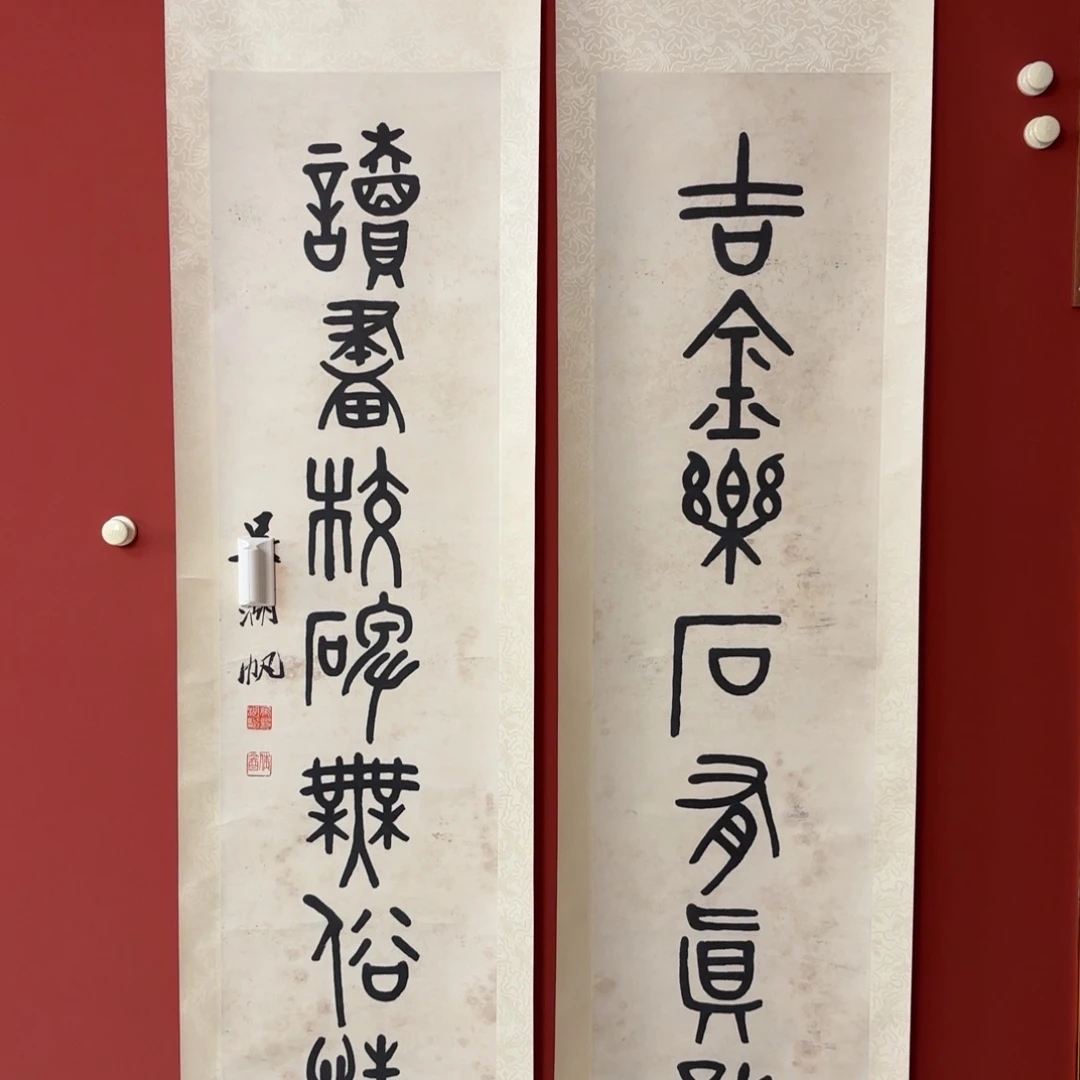 吉金樂石有眞
讀畫校碑無俗
吳湖帆